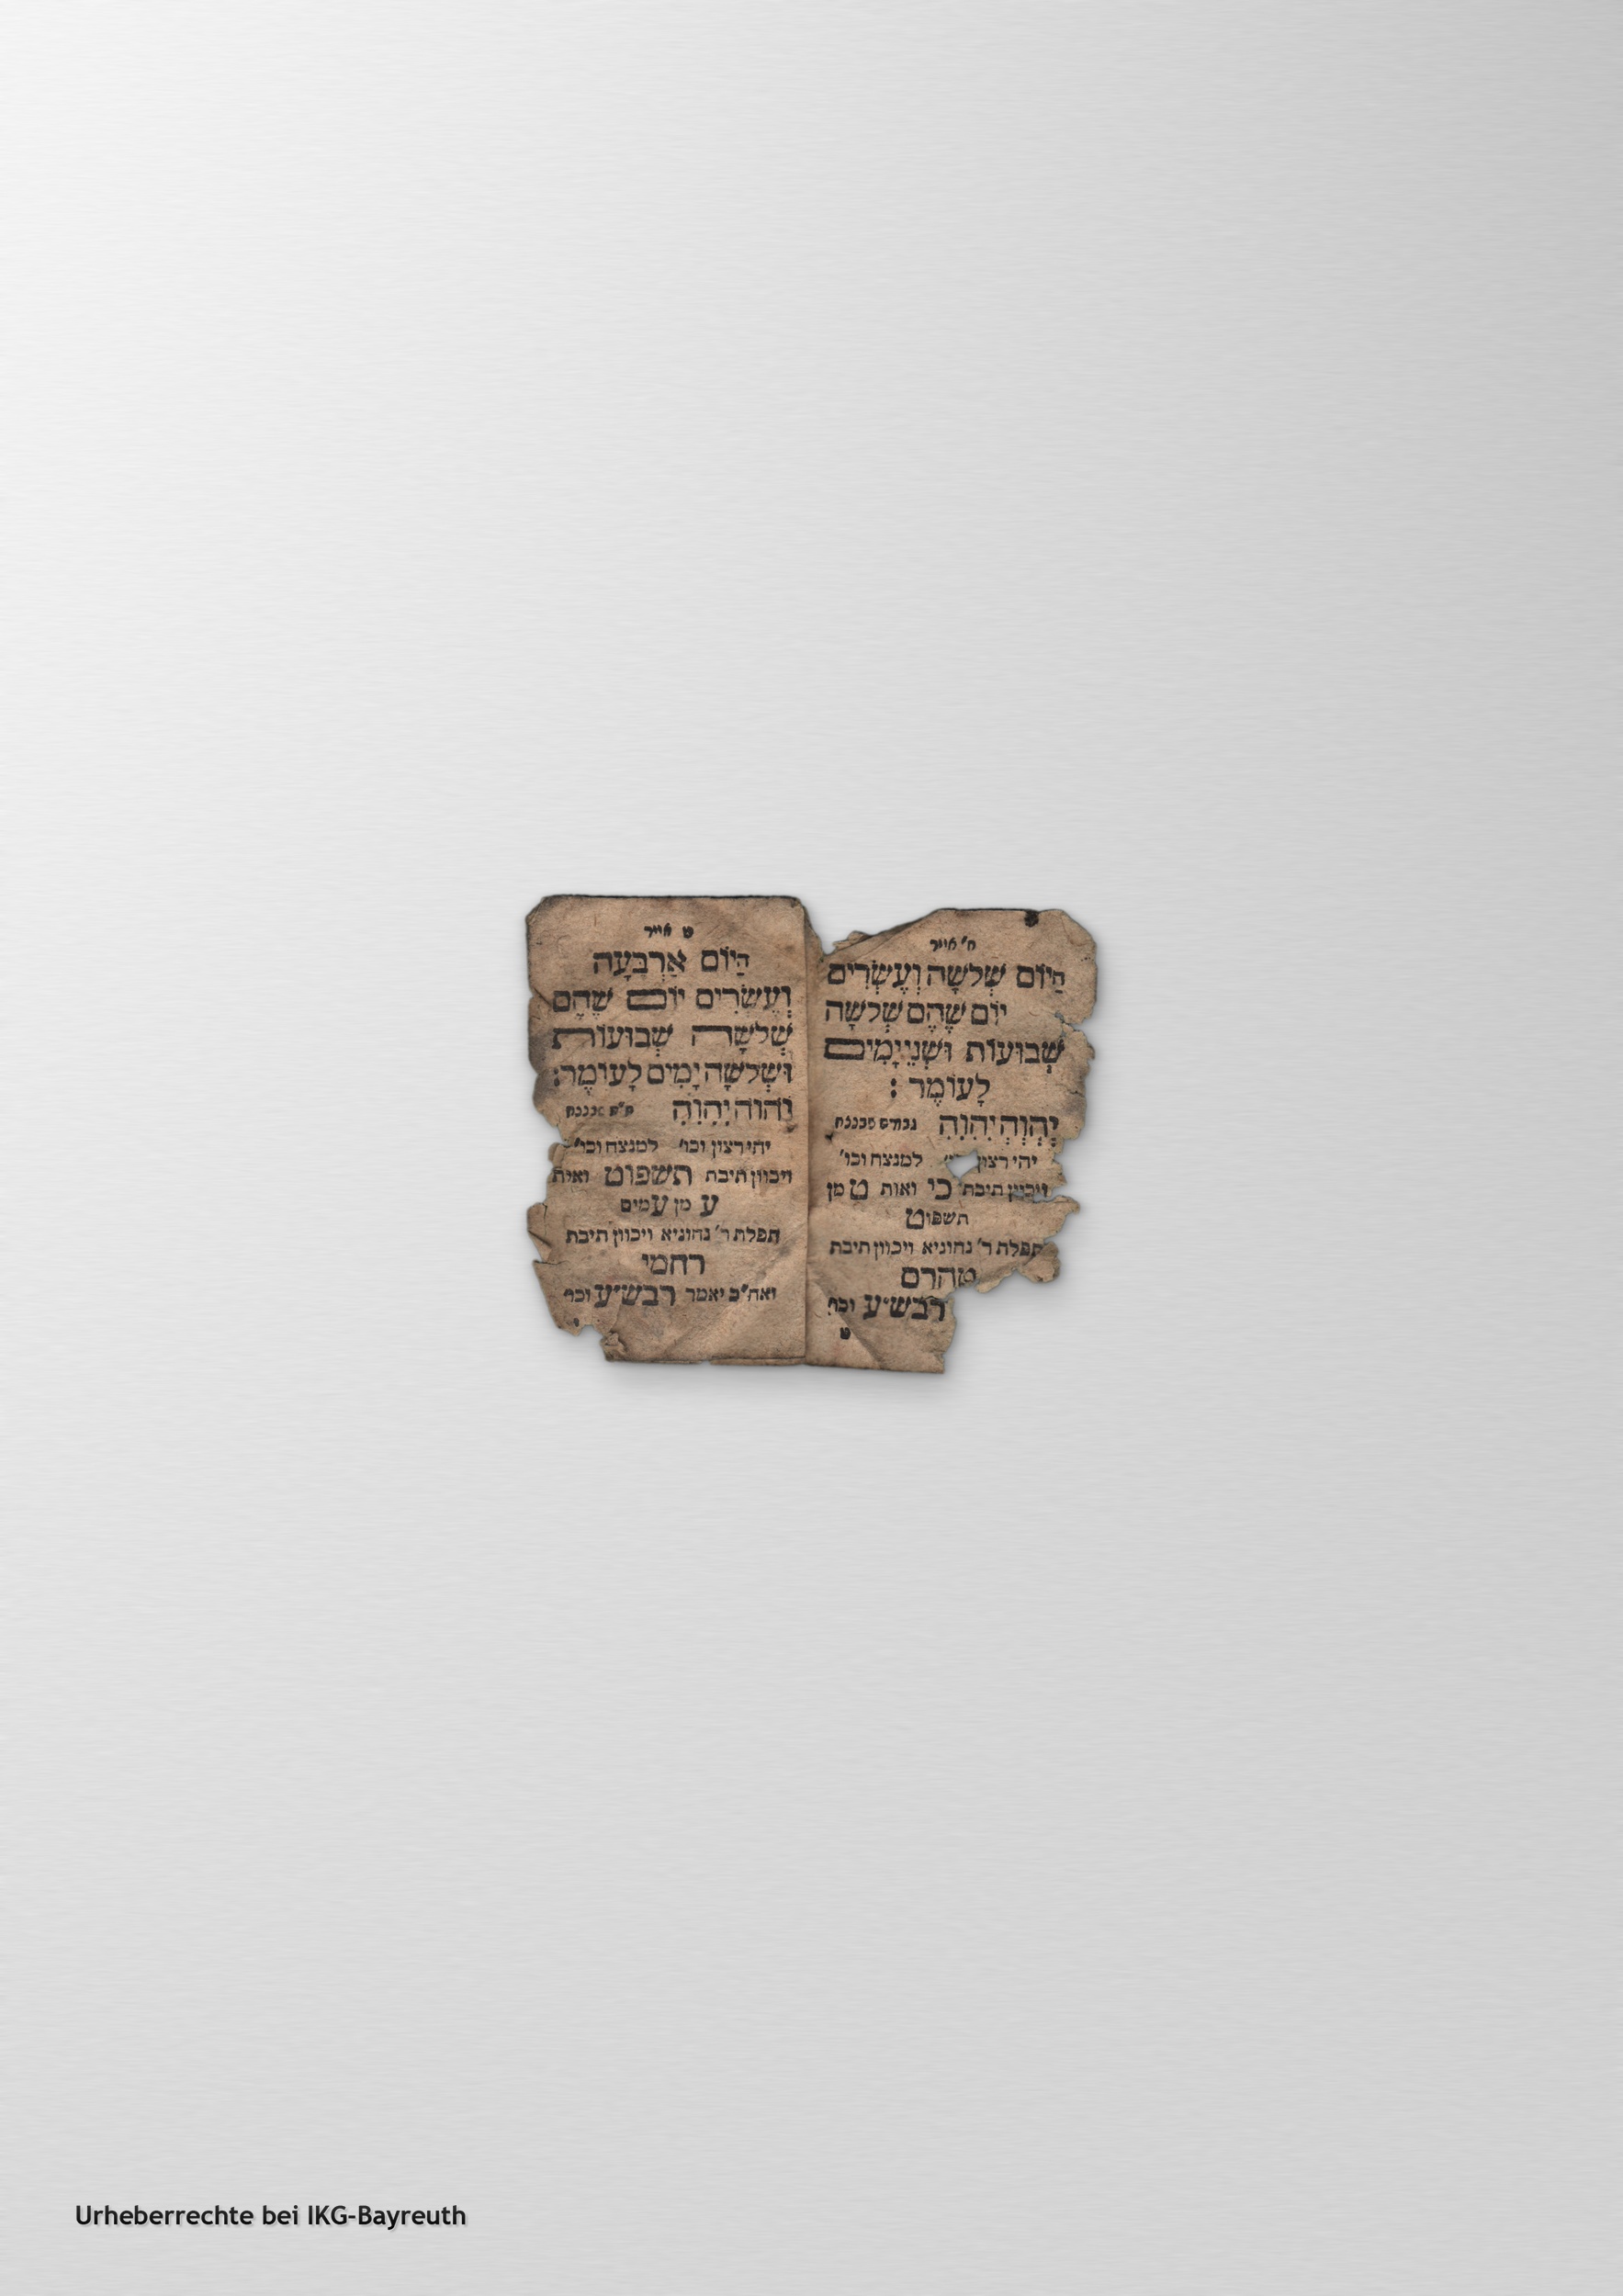 ח' אייר
הַיּוֹם שְׁלשָׁה וְעֶשְׂרִים
יוֹם שֶׁהֵם שְׁלשָׁה
שָׁבוּעוֹת וּשְׁנֵי יָמִים
לָעוֹמֶר :
יְהֹוָה יְהִוִהִ גבורה שבנצח
יהי רצון למנצח וכו'
ויכוין תיבת כי ואות ט מן
תשפוט
תפלת ר' נחוניא ויכוון תיבת
טהרם
רבש"ע וכו'
ט
ט אייר
הַיּוֹם אַרְבָּעָה
וְעֶשְׂרִים יוֹם שֶׁהֵם
שְׁלשָׁה שְׁבוּעוֹת
וּשְׁלשָׁה יָמִים לָעוֹמֶר :
יהוה יִהִוִהִ ת"ת שבנצח
יהי רצון וכו' למנצח וכו'
ויכוון תיבת תשפוט ואות
ע מן עמים
תפלת ר' נחוניא ויכוון תיבת
רחמי
ואח"כ יאמר רבש"ע וכו'
Urheberrechte bei IKG-Bayreuth